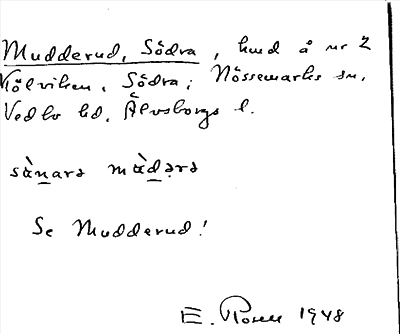 Mudderud, Södra, hmd å nr 2
Kölviken, Södra; Nössemarks sn,
Vedbo hd, Älvsborgs l.
sànarə màdərə
Se Mudderud!
E. Rosell 1948